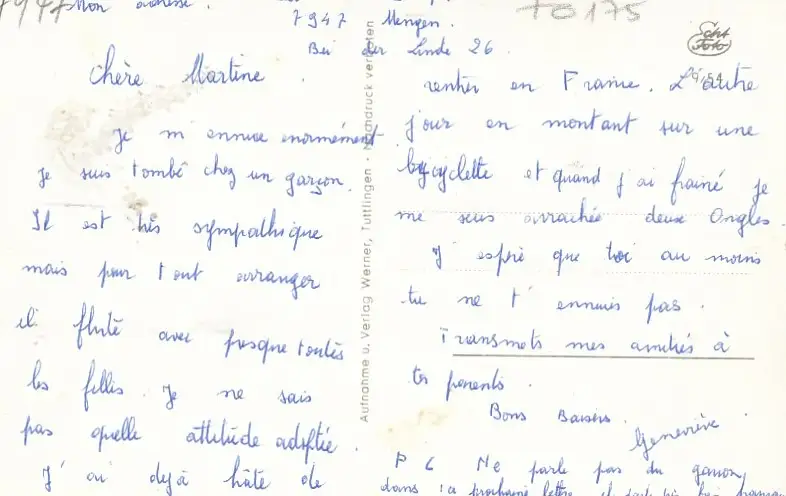 Mon adresse
7947 Mengen.
Bei der Linde 26.
70175
Chère Martine
Je m'ennuie enormément
je suis tombé chez un garçon.
Il est très sympathique
mais pour tout arranger
il flirte avec presque toutes
les filles. Je ne sais
pas quelle attitude adoptée.
J'ai dejà hâte de
Aufnahme u. Verlag Werner, Tuttlingen • Nachdruck verboten
rentrer en France. L'autre
jour en montant sur une
bycyclette et quand j'ai frainé je
me suis arrachée deux Ongles
J'espère que toi au moins
tu ne t'ennuies pas.
Transmets mes amitiés à
tes parents.
Bons Baisers.
Geneviève
P C Ne parle pas du garçon,
dans ta prochaine lettre il parle très bien français